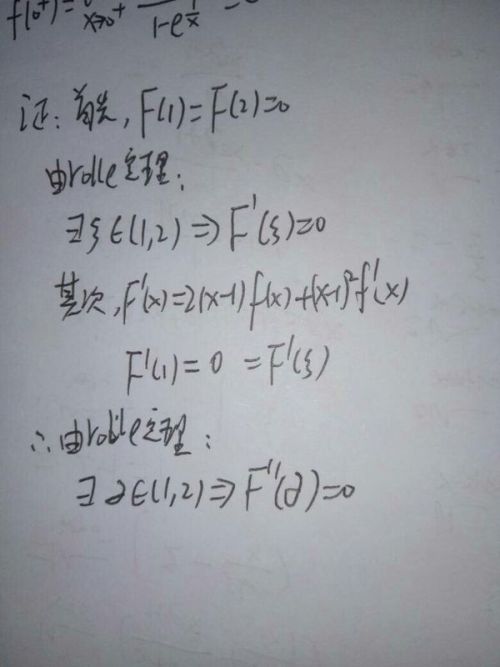 f(0⁺)=
x→0⁺ 1-e^{1/x}
证: 首先, F(1)=F(2)=0
由rolle定理:
∃ξ∈(1,2)⇒F'(ξ)=0
其次, F'(x)=2(x-1)f(x)+(x-1)²f'(x)
F'(1)=0 =F'(ξ)
∴由rolle定理:
∃∂∈(1,2)⇒F''(∂)=0